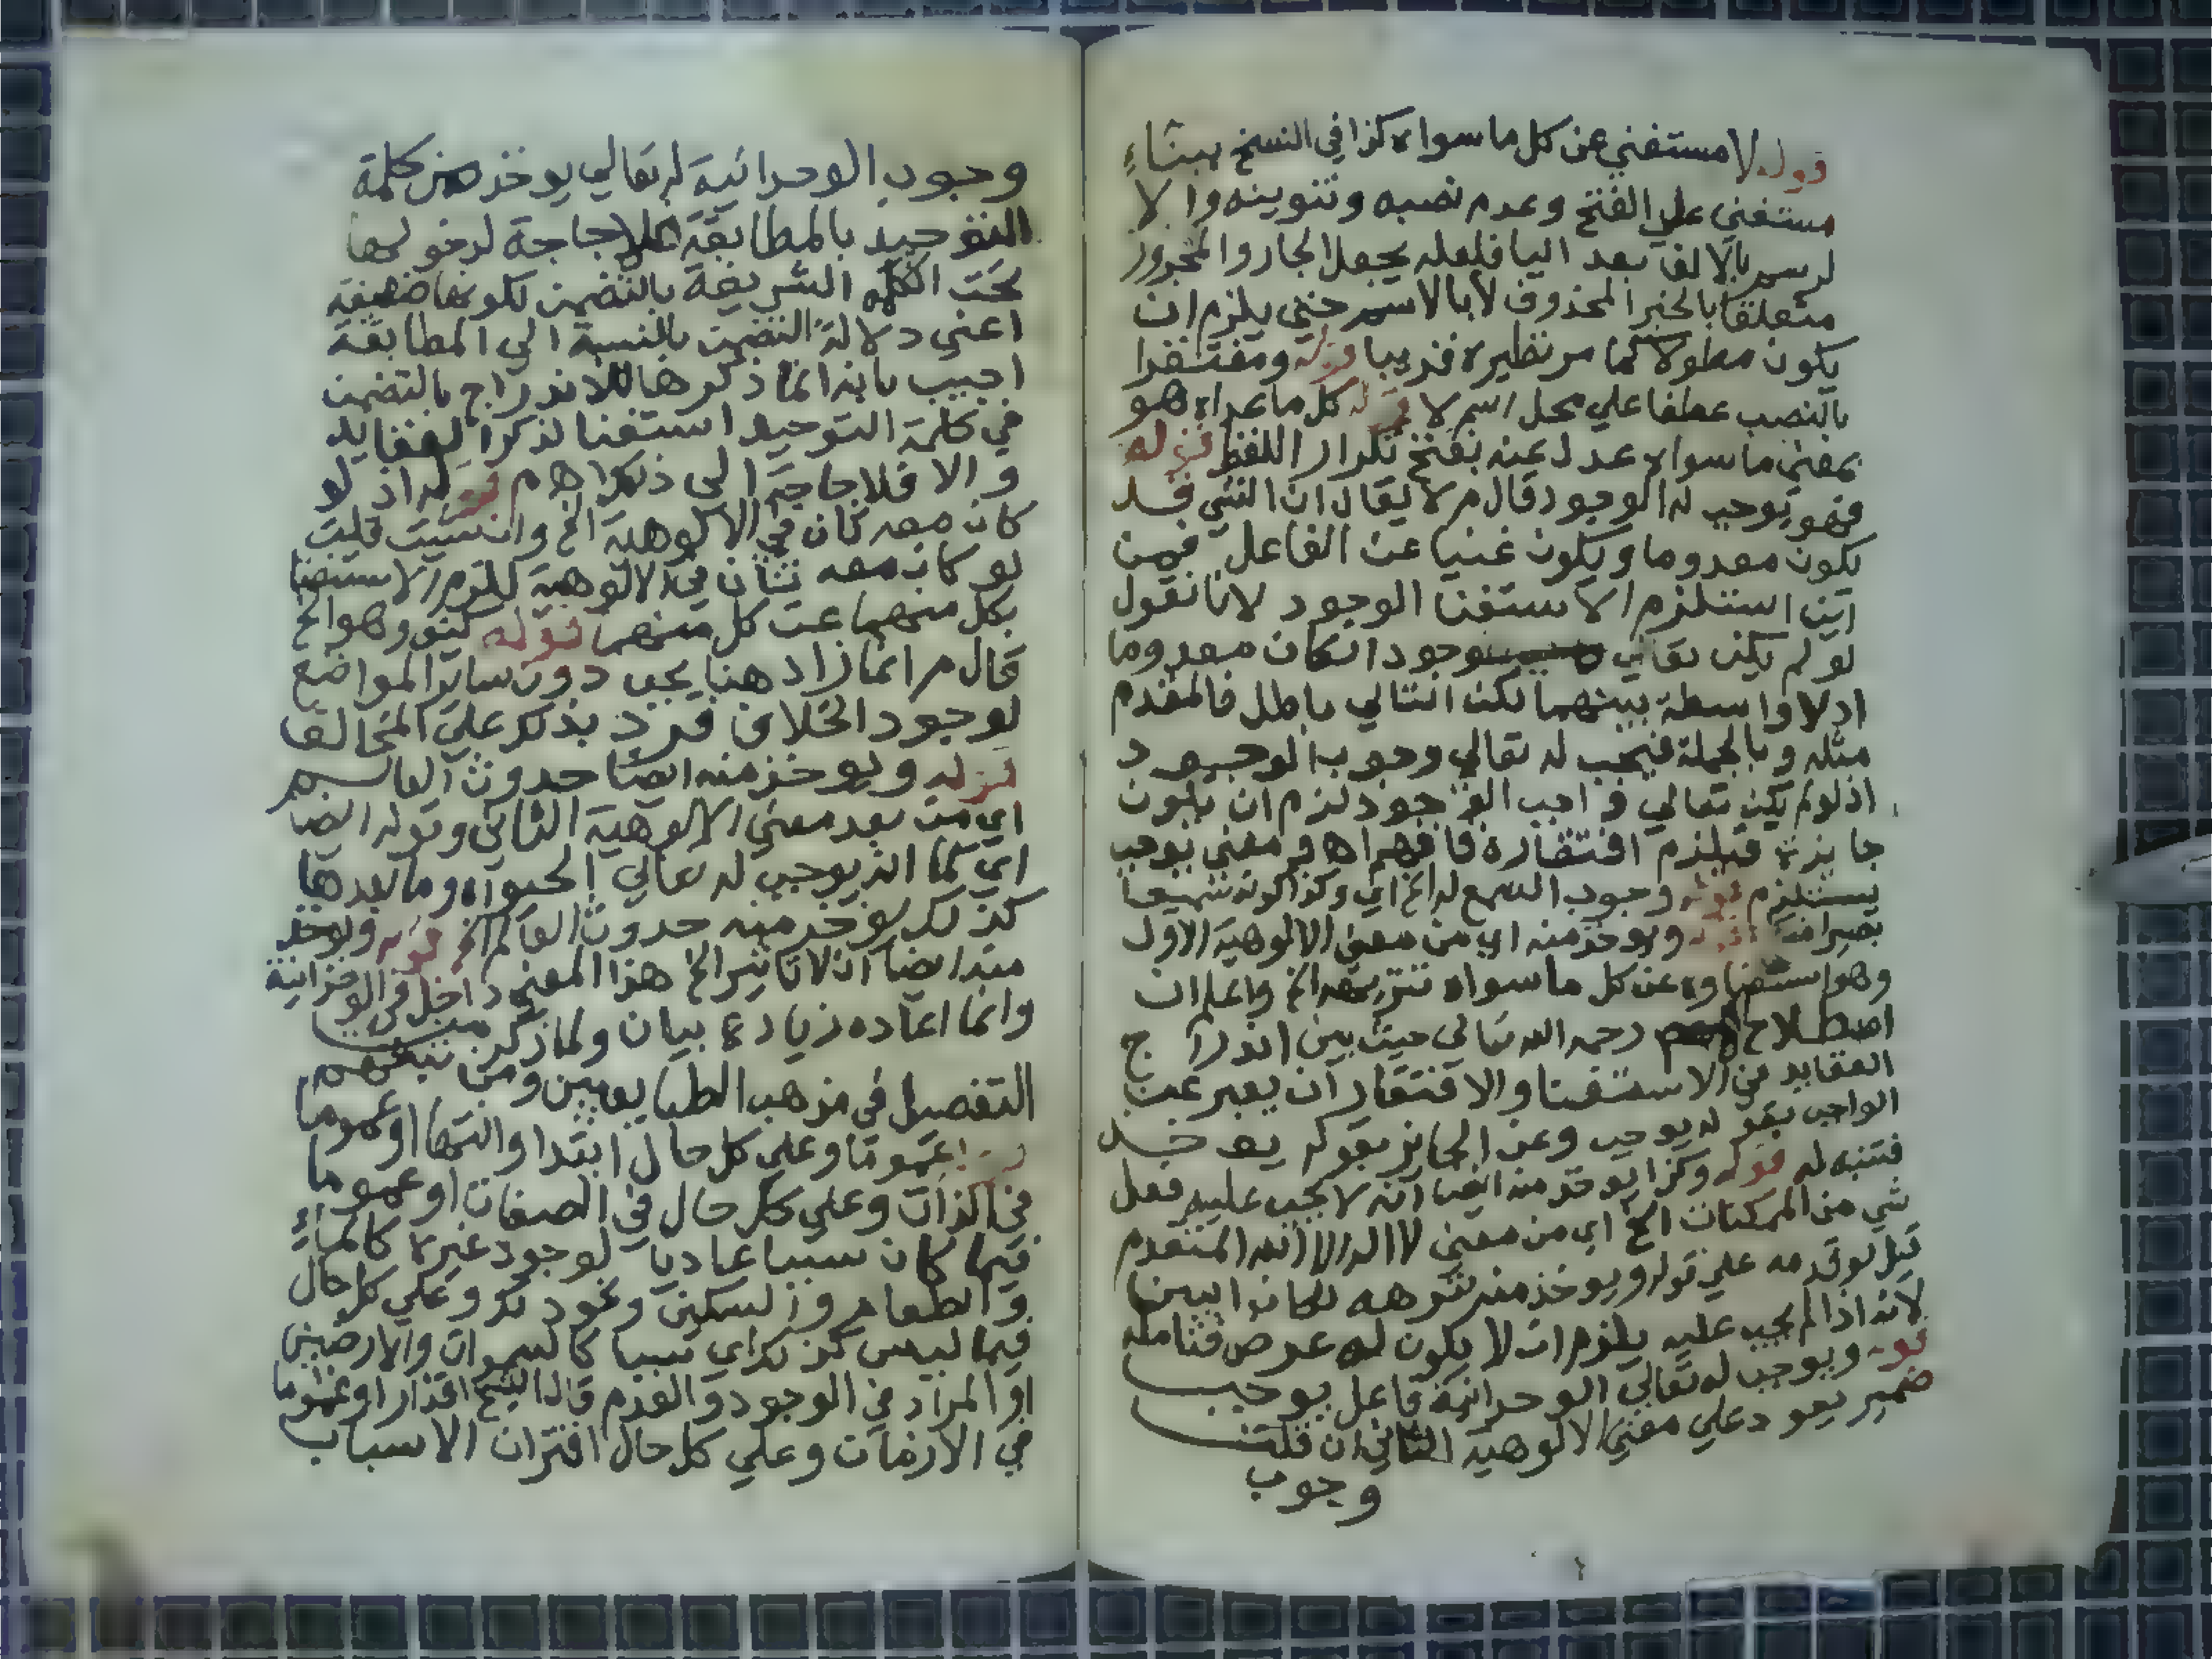 قوله لا مستغني عن كل ما سواه كذا في النسخ ببناء
مستغني علي الفتح وعدم نصبه وتنوينه والا
لرسم بالالف بعد اليا فلعله يجعل الجار والمجرور
متعلقا بالخبر المحذوف لا بالاسم حتي يلزم ان
يكون مطولا كما مر نظيره قريبا قوله ومفتقرا
بالنصب عطفا علي محل اسم لا قوله كل ما عداه هو
بمعني ما سواه عدل عنه بفتح تكرار اللفظ قوله
فهو يوجب له الوجود قال م لا يقال ان الشي قد
يكون معدوما ويكون غنيا عن الفاعل فمن
اين استلزم الاستغنا الوجود لانا نقول
لو لم يكن تعالي موجودا لكان معدوما
اذ لا واسطة بينهما لكن التالي باطل فالمقدم
مثله وبالجملة فيجب له تعالي وجوب الوجود
اذ لو لم يكن تعالي واجب الوجود لزم ان يكون
جايزه فيلزم افتقاره فافهم اه م معني يوجب
يستلزم قوله وجوب السمع له الخ اي وكذا كونه سميعا
بصيرا قوله ويوخذ منه اي من معني الالوهية الاول
وهو استغناوه عن كل ما سواه تنزيهه الخ واعلم ان
اصطلاح رحمه الله تعالي حيث بين اندراج
العقايد في الاستغنا والافتقار ان يعبر عن
الواجب بقوله يوجب وعن الجايز بقوله يوخذ
فتنبه له قوله وكذا يوخذ منه ايضا انه لا يجب عليه فعل
شي من الممكنات الخ اي من معني لا اله الا الله المتقدم
قيل لو قدمه علي قوله ويوخذ منه تنزهه لكان ابين
لانه اذا لم يجب عليه يلزم ان لا يكون له غرض فتامله
قوله ويوجب له تعالي الوحدانية فاعل يوجب
ضمير يعود علي معني الالوهية الثاني ان قلت
وجوب
وجوب الوحدانية له تعالي يوخذ من كلمة
التوحيد بالمطابقة فلا حاجة لدخولها
تحت الكلمة الشريفة بالتضمن لكونها ضعيفة
اعني دلالة التضمن بالنسبة الي المطابقة
اجيب بانه انما ذكرها للاندراج بالتضمن
في كلمة التوحيد استغنا لذكر العقايد
والا فلا حاجة الي ذكرها اه م قوله اذ لو
كان معه ثان في الالوهية الخ وان شيت قلت
لو كان معه ثان في الالوهية للزم الاستغنا
بكل منهما عن كل منهما قوله كيف وهو الخ
قال م انما زاد هنا يجب دون ساير المواضع
لوجود الخلاف فرد بذلك علي المخالف
قوله ويوخذ منه ايضا حدوث العالم
اي من بعد معني الالوهية الثاني وقوله ايضا
اي كما انه يوجب له تعالي الحيوة وما بعدها
كذلك يوخذ منه حدوث العالم الخ قوله ويوخذ
منه ايضا ان لا تاثير الخ هذا المعني داخل في الوحدانية
وانما اعاده زيادة بيان ولما ذكر من
التفصيل في مذهب الطبايعيين ومن تبعهم
قوله عموما وعلي كل حال ابتدا وانتها او عموما
في الذات وعلي كل حال في الصفات او عموما
فيما كان سببا عاديا لوجود غيره كالماء
والطعام والسكين ونحو ذلك وعلي كل حال
فيما ليس كذلك اي سببا كالسموات والارضين
او المراد في الوجود والعدم قال الشيخ اقدار او عموما
في الازمان وعلي كل حال اقتران الاسباب